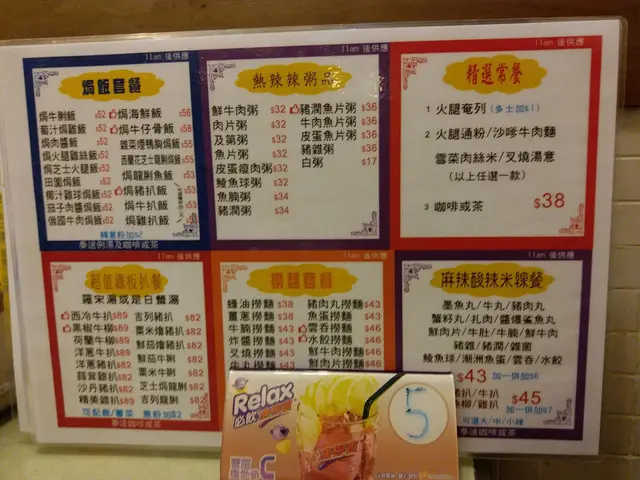 11am 後供應
焗飯套餐
焗牛脷飯 $52
葡汁焗雞飯 $52
焗肉醬飯 $52
焗火腿雞絲飯 $52
焗芝士火腿飯 $52
田園焗飯 $52
椰汁雞球焗飯 $52
茄子肉醬焗飯 $52
俄國牛肉焗飯 $52
焗海鮮飯 $56
焗牛仔骨飯 $58
焗龍脷魚飯 $53
焗豬扒飯 $53
焗牛扒飯
焗雞扒飯
轉意粉加$2
奉送例湯及咖啡或茶
11am 後供應
熱辣辣粥品
鮮牛肉粥 $32
肉片粥 $32
及第粥 $32
魚片粥 $32
皮蛋瘦肉粥 $32
鯪魚球粥 $32
魚腩粥 $34
豬潤粥 $34
豬潤魚片粥 $36
牛肉魚片粥 $36
皮蛋魚片粥 $36
豬雜粥 $36
白粥 $17
11am 後供應
精選常餐
1 火腿奄列 (多士加$1)
2 火腿通粉/沙嗲牛肉麵
雪菜肉絲米/叉燒湯意
(以上任選一款)
3 咖啡或茶 $38
11am 後供應
超值鐵板扒餐
羅宋湯或是日餐湯
西冷牛扒 $89
黑椒牛柳 $89
荷蘭牛柳 $89
洋蔥牛扒 $89
洋蔥豬扒 $82
蒜茸雞扒 $82
沙丹豬扒 $82
精美雞扒 $89
吉列豬扒 $82
粟米燴豬扒 $82
鮮茄燴豬扒 $82
鮮茄牛脷 $82
粟米牛脷 $82
芝士焗龍脷 $82
吉列龍脷 $82
可配飯/薯菜 意粉加$2
奉送咖啡或茶
11am 後供應
撈麵套餐
蠔油撈麵 $38
薑蔥撈麵 $38
牛腩撈麵 $43
炸醬撈麵 $43
叉燒撈麵
牛丸撈麵
豬肉丸撈麵 $43
魚蛋撈麵 $43
雲吞撈麵 $46
水餃撈麵 $46
鮮牛肉撈麵 $43
11am 後供應
麻辣酸辣米線餐
墨魚丸/牛丸/豬肉丸
蟹籽丸/扎肉/醬爆鯊魚丸
鮮肉片/牛肚/牛腩/鮮牛肉
豬雜/豬潤/雜菌
鯪魚球/潮洲魚蛋/雲吞/水餃
$43 加一併加$6
豬扒/牛扒/
魚柳/雞扒 $45 加一併加$7
可選大/中/小辣
奉送咖啡或茶
Relax
必飲
C
5